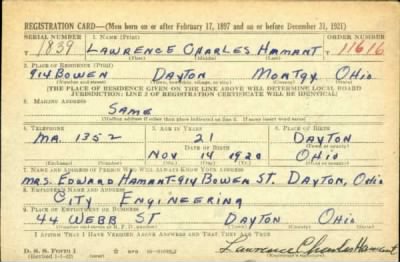 REGISTRATION CARD—(Men born on or after February 17, 1897 and on or before December 31, 1921)
SERIAL NUMBER 1. NAME (Print) ORDER NUMBER
T 1839 LAWRENCE CHARLES HAMANT 11616
(First) (Middle) (Last)
2. PLACE OF RESIDENCE (Print)
914 BOWEN DAYTON MONTGY OHIO
(Number and street) (Town, township, village, or city) (County) (State)
[THE PLACE OF RESIDENCE GIVEN ON THE LINE ABOVE WILL DETERMINE LOCAL BOARD
JURISDICTION; LINE 2 OF REGISTRATION CERTIFICATE WILL BE IDENTICAL]
3. MAILING ADDRESS
SAME
[Mailing address if other than place indicated on line 2. If same insert word same]
4. TELEPHONE 5. AGE IN YEARS 6. PLACE OF BIRTH
MA. 1352 21 DAYTON
DATE OF BIRTH (Town or county)
NOV 14 1920 OHIO
(Exchange) (Number) (Mo.) (Day) (Yr.) (State or country)
7. NAME AND ADDRESS OF PERSON WHO WILL ALWAYS KNOW YOUR ADDRESS
MRS. EDWARD HAMANT-914 BOWEN ST. DAYTON, OHIO
8. EMPLOYER'S NAME AND ADDRESS
CITY ENGINEERING
9. PLACE OF EMPLOYMENT OR BUSINESS
44 WEBB ST DAYTON OHIO
(Number and street or R. F. D. number) (Town) (County) (State)
I AFFIRM THAT I HAVE VERIFIED ABOVE ANSWERS AND THAT THEY ARE TRUE.
D. S. S. Form 1 GPO
(Revised 1-1-42) (over) Lawrence Charles Hamant
(Registrant's signature)